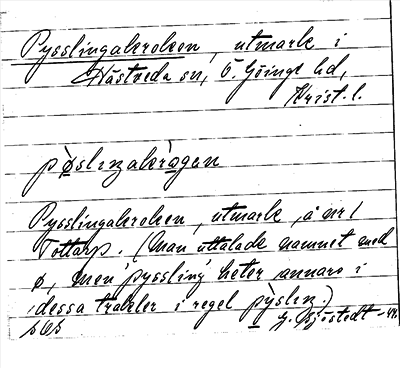 Pysslingakroken, utmark i
Hästveda sn, Ö. Göinge hd,
Krist. l.
pøslıŋakrògen
Pysslingakroken, utmark, å nr 1
Tottarp. (Man uttalade namnet med
ø, men 'pyssling' heter annars i
dessa trakter i regel pỳslıŋ.)
J. Sjöstedt -44.